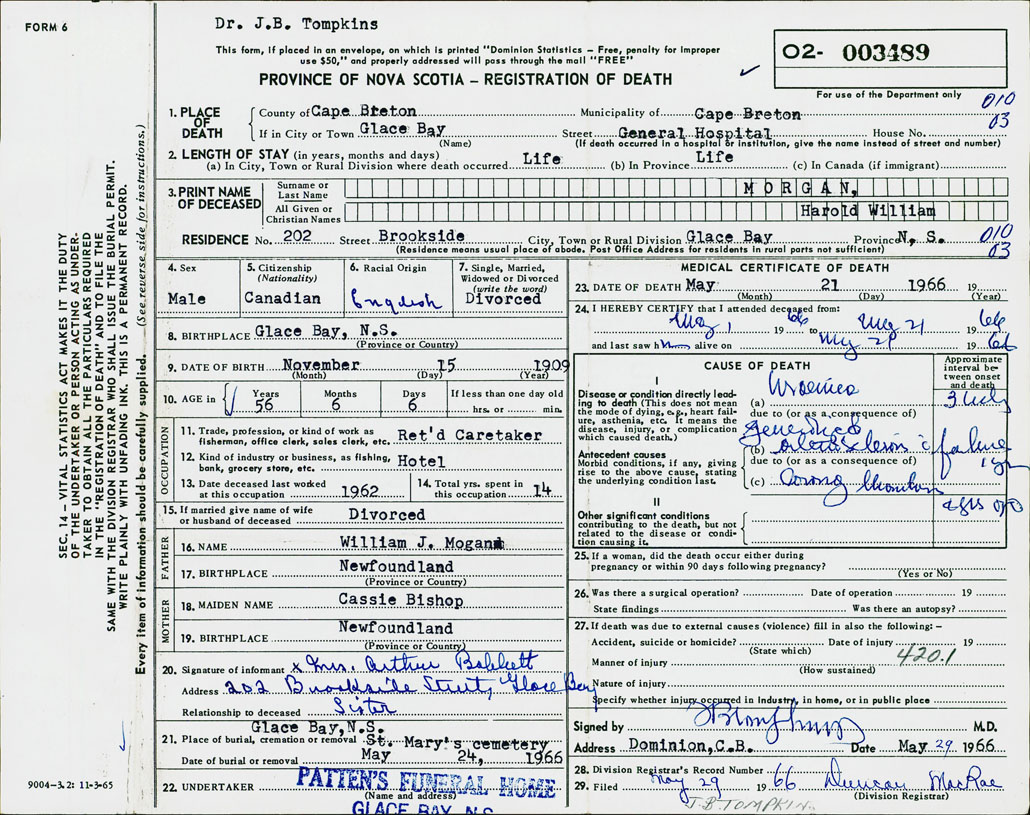 FORM 6
Dr. J.B. Tompkins
This form, if placed in an envelope, on which is printed "Dominion Statistics – Free, penalty for improper
use $50," and properly addressed will pass through the mail "FREE"
PROVINCE OF NOVA SCOTIA – REGISTRATION OF DEATH
02- 003489
For use of the Department only
010
03
1. PLACE OF DEATH
County of Cape Breton Municipality of Cape Breton
If in City or Town Glace Bay Street General Hospital House No.
(Name) (If death occurred in a hospital or institution, give the name instead of street and number)
2. LENGTH OF STAY (in years, months and days)
(a) In City, Town or Rural Division where death occurred Life (b) In Province Life (c) In Canada (if immigrant)
3. PRINT NAME OF DECEASED
Surname or Last Name MORGAN,
All Given or Christian Names Harold William
RESIDENCE No. 202 Street Brookside City, Town or Rural Division Glace Bay Province N, S.
(Residence means usual place of abode. Post Office Address for residents in rural parts not sufficient)
010
03
4. Sex
Male
5. Citizenship
(Nationality)
Canadian
6. Racial Origin
English
7. Single, Married,
Widowed or Divorced
(write the word)
Divorced
8. BIRTHPLACE Glace Bay, N.S.
(Province or Country)
9. DATE OF BIRTH November 15 1909
(Month) (Day) (Year)
10. AGE in Years Months Days If less than one day old
56 6 6 hrs. or min.
OCCUPATION
11. Trade, profession, or kind of work as
fisherman, office clerk, sales clerk, etc. Ret'd Caretaker
12. Kind of industry or business, as fishing,
bank, grocery store, etc. Hotel
13. Date deceased last worked
at this occupation 1962
14. Total yrs. spent in
this occupation 14
15. If married give name of wife
or husband of deceased Divorced
FATHER
16. NAME William J. Mogan
17. BIRTHPLACE Newfoundland
(Province or Country)
MOTHER
18. MAIDEN NAME Cassie Bishop
19. BIRTHPLACE Newfoundland
(Province or Country)
20. Signature of informant x Mrs. Arthur Babbett
Address 202 Brookside Street, Glace Bay
Relationship to deceased Sister
Glace Bay, N.S.
21. Place of burial, cremation or removal St. Mary's cemetery
Date of burial or removal May 24, 1966
22. UNDERTAKER PATTEN'S FUNERAL HOME
(Name and address)
GLACE BAY, N.S.
MEDICAL CERTIFICATE OF DEATH
23. DATE OF DEATH May 21 1966 19
(Month) (Day) (Year)
24. I HEREBY CERTIFY that I attended deceased from:
May 1 1966 to May 21 1966
and last saw him alive on May 21 1966
CAUSE OF DEATH
Approximate
interval be-
tween onset
and death
I
Disease or condition directly lead-
ing to death (This does not mean
the mode of dying, e.g., heart fail-
ure, asthenia, etc. It means the
disease, injury, or complication
which caused death.)
(a) Uraemia
due to (or as a consequence of)
Generalized
(b)
failure
Antecedent causes
Morbid conditions, if any, giving
rise to the above cause, stating
the underlying condition last.
due to (or as a consequence of)
(c) Coronary
II
Other significant conditions
contributing to the death, but not
related to the disease or condi-
tion causing it.
25. If a woman, did the death occur either during
pregnancy or within 90 days following pregnancy?
(Yes or No)
26. Was there a surgical operation? Date of operation 19
State findings Was there an autopsy?
27. If death was due to external causes (violence) fill in also the following: –
Accident, suicide or homicide? Date of injury 19
(State which)
420.1
Manner of injury
(How sustained)
Nature of injury
Specify whether injury occurred in Industry, in home, or in public place
Signed by M.D.
Address Dominion, C.B. Date May 29 1966
28. Division Registrar's Record Number
29. Filed May 29 1966 Duncan MacRae
(Division Registrar)
J.B. TOMPKINS
SEC. 14 – VITAL STATISTICS ACT MAKES IT THE DUTY
OF THE UNDERTAKER OR PERSON ACTING AS UNDER-
TAKER TO OBTAIN ALL THE PARTICULARS REQUIRED
IN THE "REGISTRATION OF DEATH" AND TO FILE THE
SAME WITH THE DIVISION REGISTRAR WHO SHALL ISSUE THE BURIAL PERMIT.
WRITE PLAINLY WITH UNFADING INK. THIS IS A PERMANENT RECORD.
Every item of information should be carefully supplied. (See reverse side for instructions.)
9004-3.2: 11-3-65